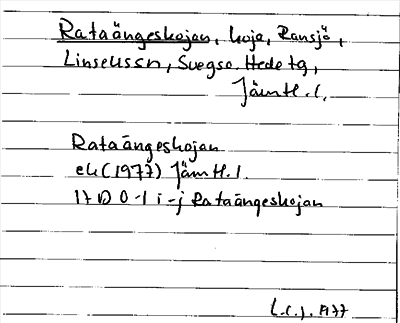 Rataängeskojan, koja, Ransjö,
Linsellssn, Svegs o. Hede tg,
Jämtl. l.
Rataängeskojan
ek (1977) Jämtl. l.
17 D 0-1 i-j Rataängeskojan
L.c.j. 1977